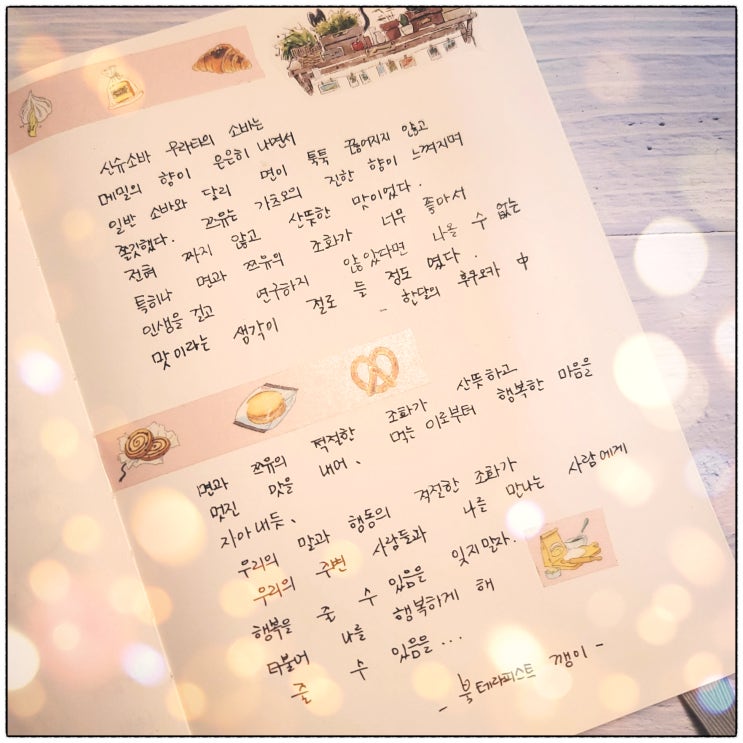 신슈소바 무라타의 소바는
메밀의 향이 은은히 나면서
일반 소바와 달리 면이 툭툭 끊어지지 않고
쫄깃했다. 쯔유는 가츠오의 진한 향이 느껴지며
전혀 짜지 않고 산뜻한 맛이었다.
특히나 면과 쯔유의 조화가 너무 좋아서
인생을 걸고 연구하지 않았다면 나올 수 없는
맛이라는 생각이 절로 들 정도였다.
- 한달의 후쿠오카 中
면과 쯔유의 적절한 조화가 산뜻하고
멋진 맛을 내어, 먹는 이로부터 행복한 마음을
자아내듯,
우리의 말과 행동의 적절한 조화가
우리의 주변 사람들과 나를 만나는 사람에게
행복을 줄 수 있음을 잊지말자.
더불어 나를 행복하게 해
줄 수 있음을...
- 북테라피스트 깽이 -